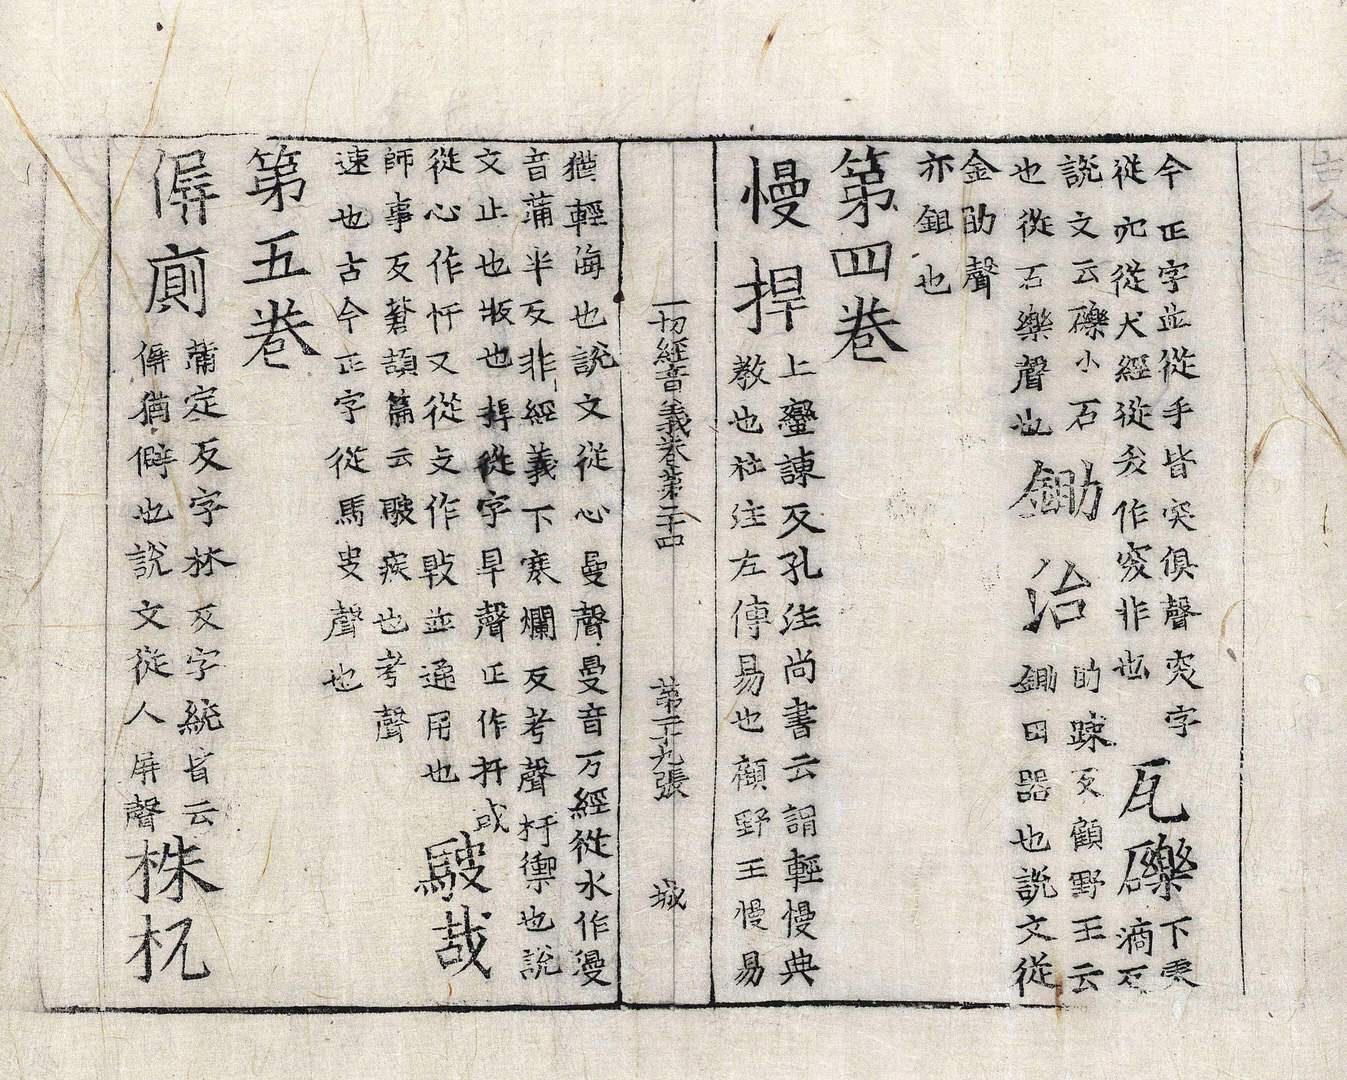 今正字並從手皆突俱聲突字
從穴從犬經從犮作窔非也
瓦礫
下零
滴反
說文云礫小石
也從石樂聲也
鋤治
助踈反顧野王云
鋤田器也說文從
金助聲
亦鉏也
第四卷
慢捍
上蠻諫反孔注尚書云謂輕慢典
教也杜注左傳易也顧野王慢易
一切經音義卷第二十四 第二十九張 城
猶輕海也說文從心曼聲曼音万經從水作漫
音蒲半反非經義下寒爛反考聲扞禦也說
文止也䘖也捍從字旱聲正作扞或
從心作忓又從攴作㪋並通用也
駛哉
師事反蒼頡篇云駛疾也考聲
速也古今正字從馬吏聲也
第五卷
偋廁
蒲定反字林及字統皆云
偋猶僻也說文從人屏聲
株杌